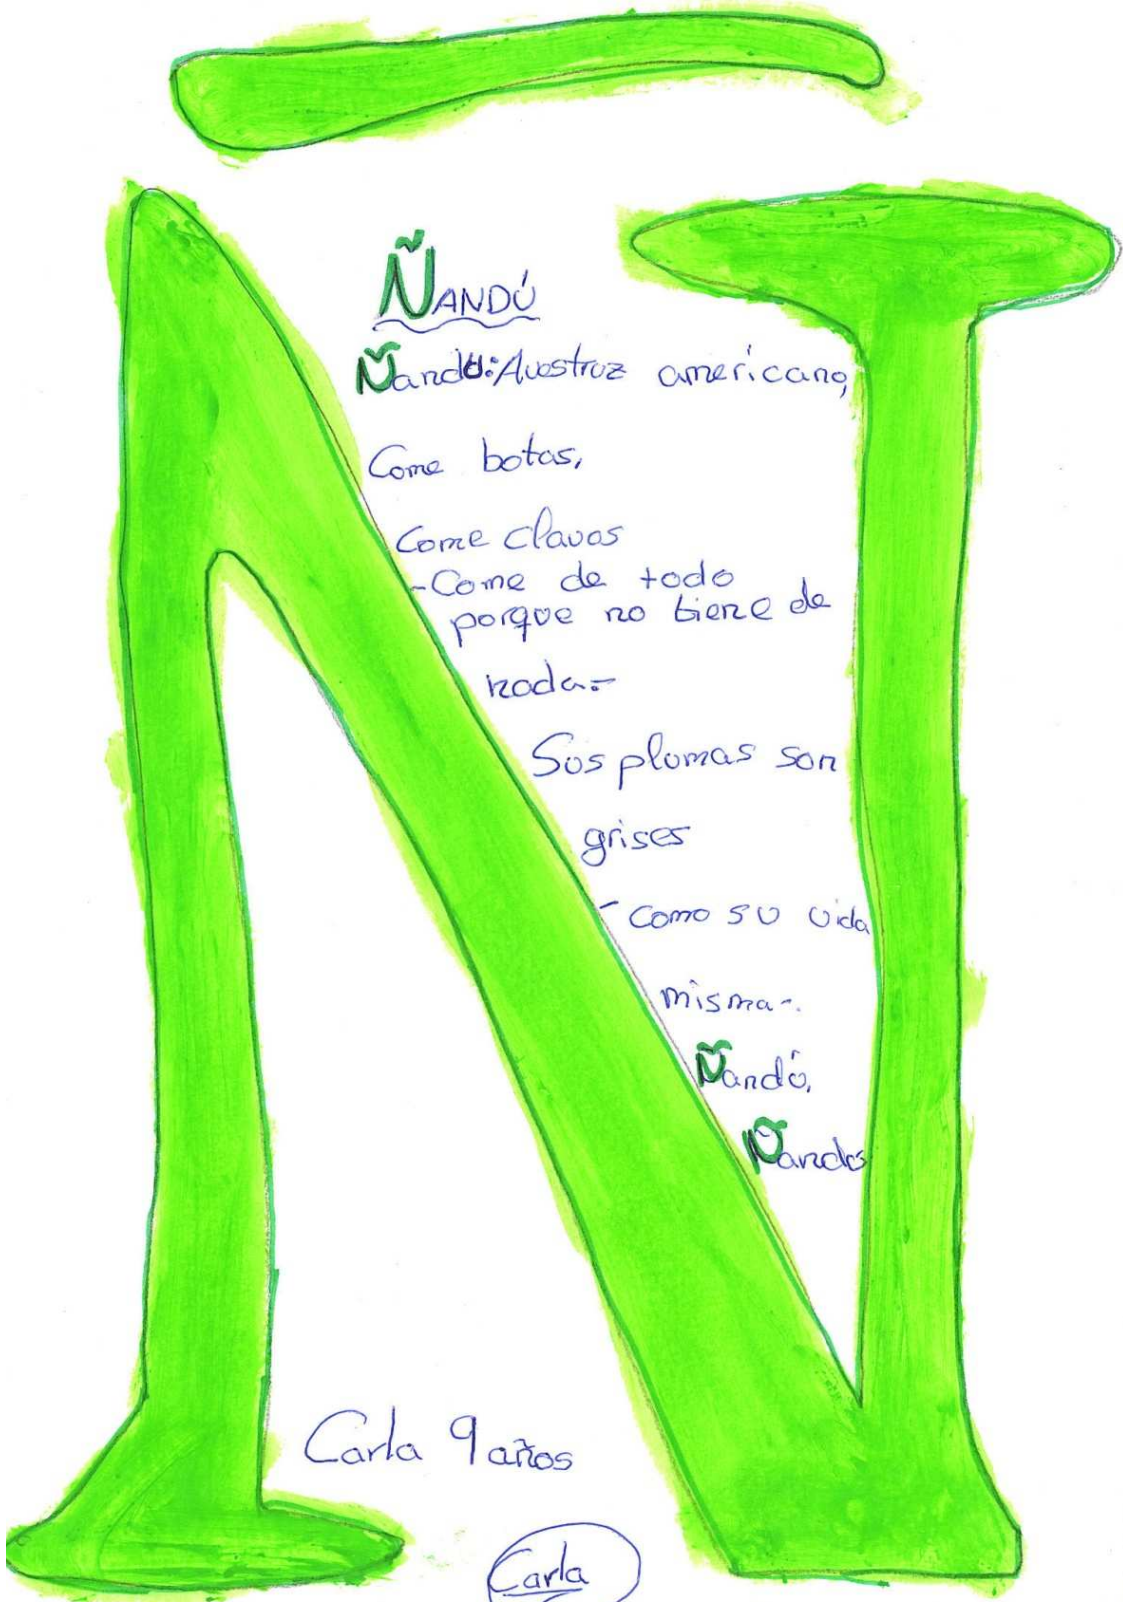 Ñ
ÑANDÚ
Ñandú: Avestruz americano,
Come botas,
Come clavos
-Come de todo
porque no tiene de
nada-
Sus plumas son
grises
- como su vida
misma-.
Ñandú,
Ñandú
Carla 9 años
Carla